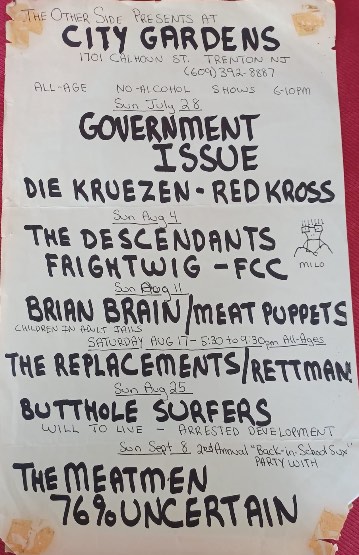 THE OTHER SIDE PRESENTS AT
CITY GARDENS
1701 CALHOUN ST. TRENTON NJ
(609) 392-8887
ALL-AGE NO-ALCOHOL SHOWS 6-10PM
Sun July 28
GOVERNMENT
ISSUE
DIE KRUEZEN - RED KROSS
Sun Aug 4
THE DESCENDANTS
FRIGHTWIG - FCC
MILO
Sun Aug 11
BRIAN BRAIN/MEAT PUPPETS
CHILDREN IN ADULT JAILS
SATURDAY AUG 17 - 5:30 to 9:30pm All-Ages
THE REPLACEMENTS/RETTMAN!
Sun Aug 25
BUTTHOLE SURFERS
WILL TO LIVE - ARRESTED DEVELOPMENT
Sun Sept 8 2nd Annual "Back-in-School Sux"
PARTY WITH
THE MEATMEN
76% UNCERTAIN